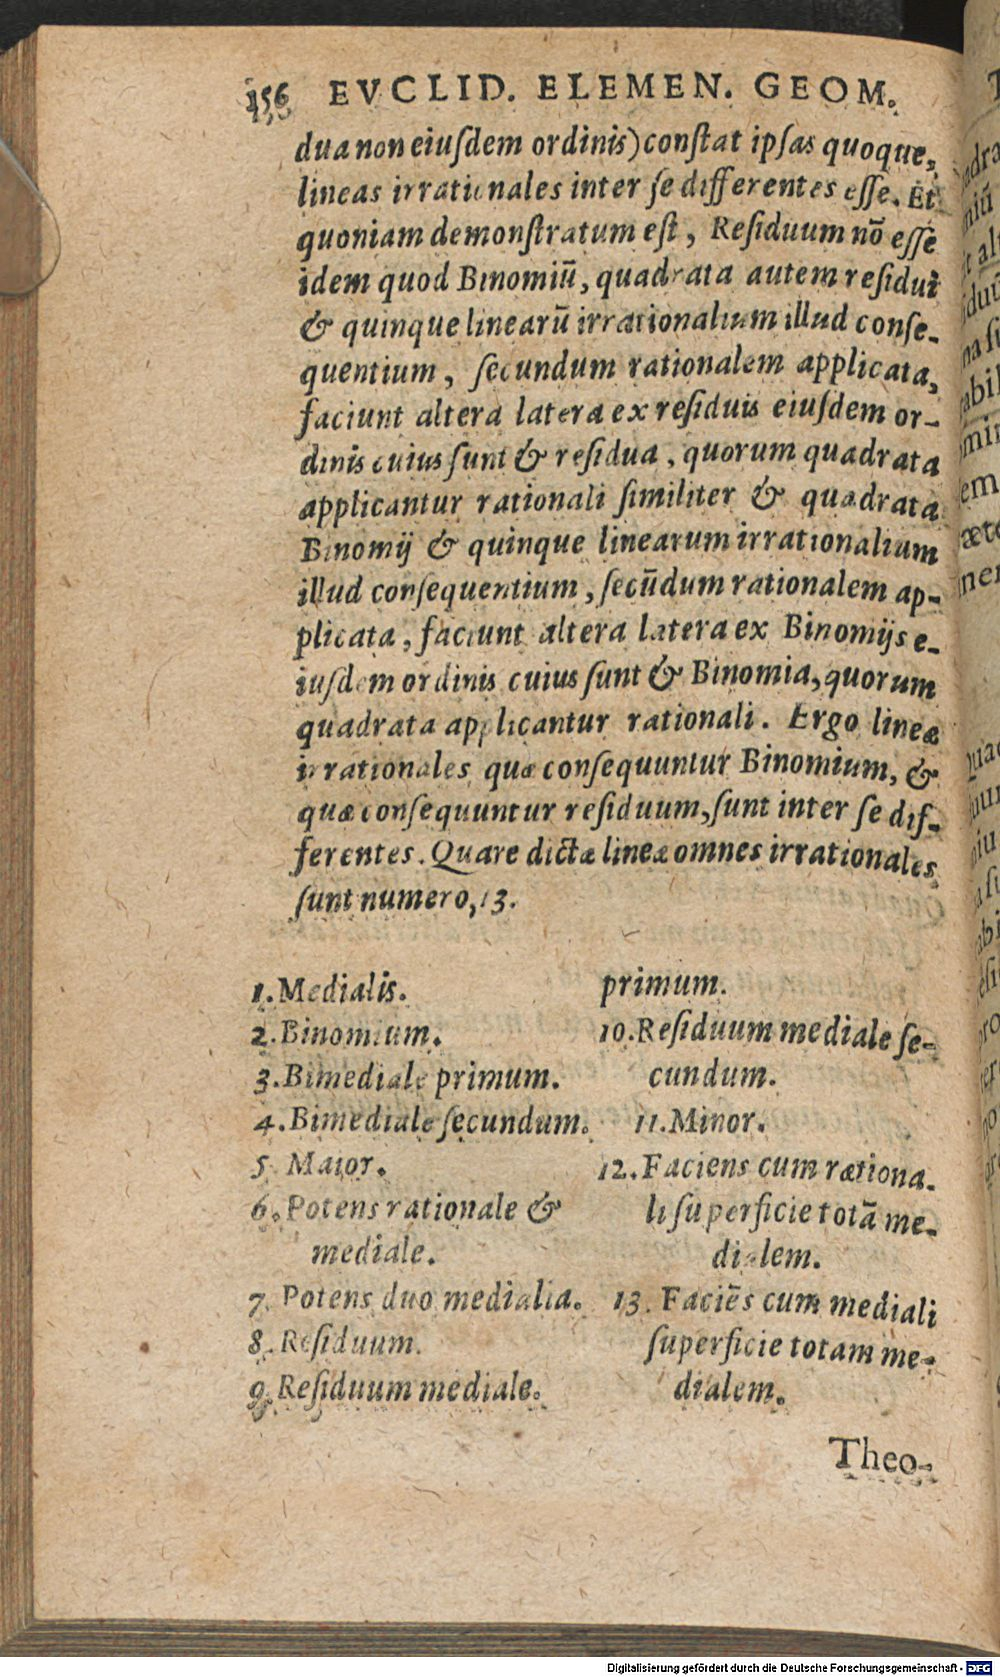 156 EVCLID. ELEMEN. GEOM.
dua non eiuſdem ordinis) conſtat ipſas quoque,
lineas irrationales inter ſe differentes eſſe. Et
quoniam demonſtratum eſt, Reſiduum nō eſſe
idem quod Binomiū, quadrata autem reſidui
& quinque linearū irrationalium illud conſe-
quentium, ſecundum rationalem applicata,
faciunt altera latera ex reſiduis eiuſdem or-
dinis cuius ſunt & reſidua, quorum quadrata
applicantur rationali ſimiliter & quadrata
Binomij & quinque linearum irrationalium
illud conſequentium, ſecūdum rationalem ap-
plicata, faciunt altera latera ex Binomijs e-
iuſdem ordinis cuius ſunt & Binomia, quorum
quadrata applicantur rationali. Ergo lineæ
irrationales quæ conſequuntur Binomium, &
quæ conſequuntur reſiduum, ſunt inter ſe dif-
ferentes. Quare dictæ lineæ omnes irrationales
ſunt numero, 13.
1. Medialis.
2. Binomium.
3. Bimediale primum.
4. Bimediale ſecundum.
5. Maior.
6. Potens rationale &
mediale.
7. Potens duo medialia.
8. Reſiduum.
9. Reſiduum mediale.
primum.
10. Reſiduum mediale ſe-
cundum.
11. Minor.
12. Faciens cum rationa-
li ſuperficie totā me-
dialem.
13. Faciēs cum mediali
ſuperficie totam me-
dialem.
Theo-
Digitalisierung gefördert durch die Deutsche Forschungsgemeinschaft - DFG